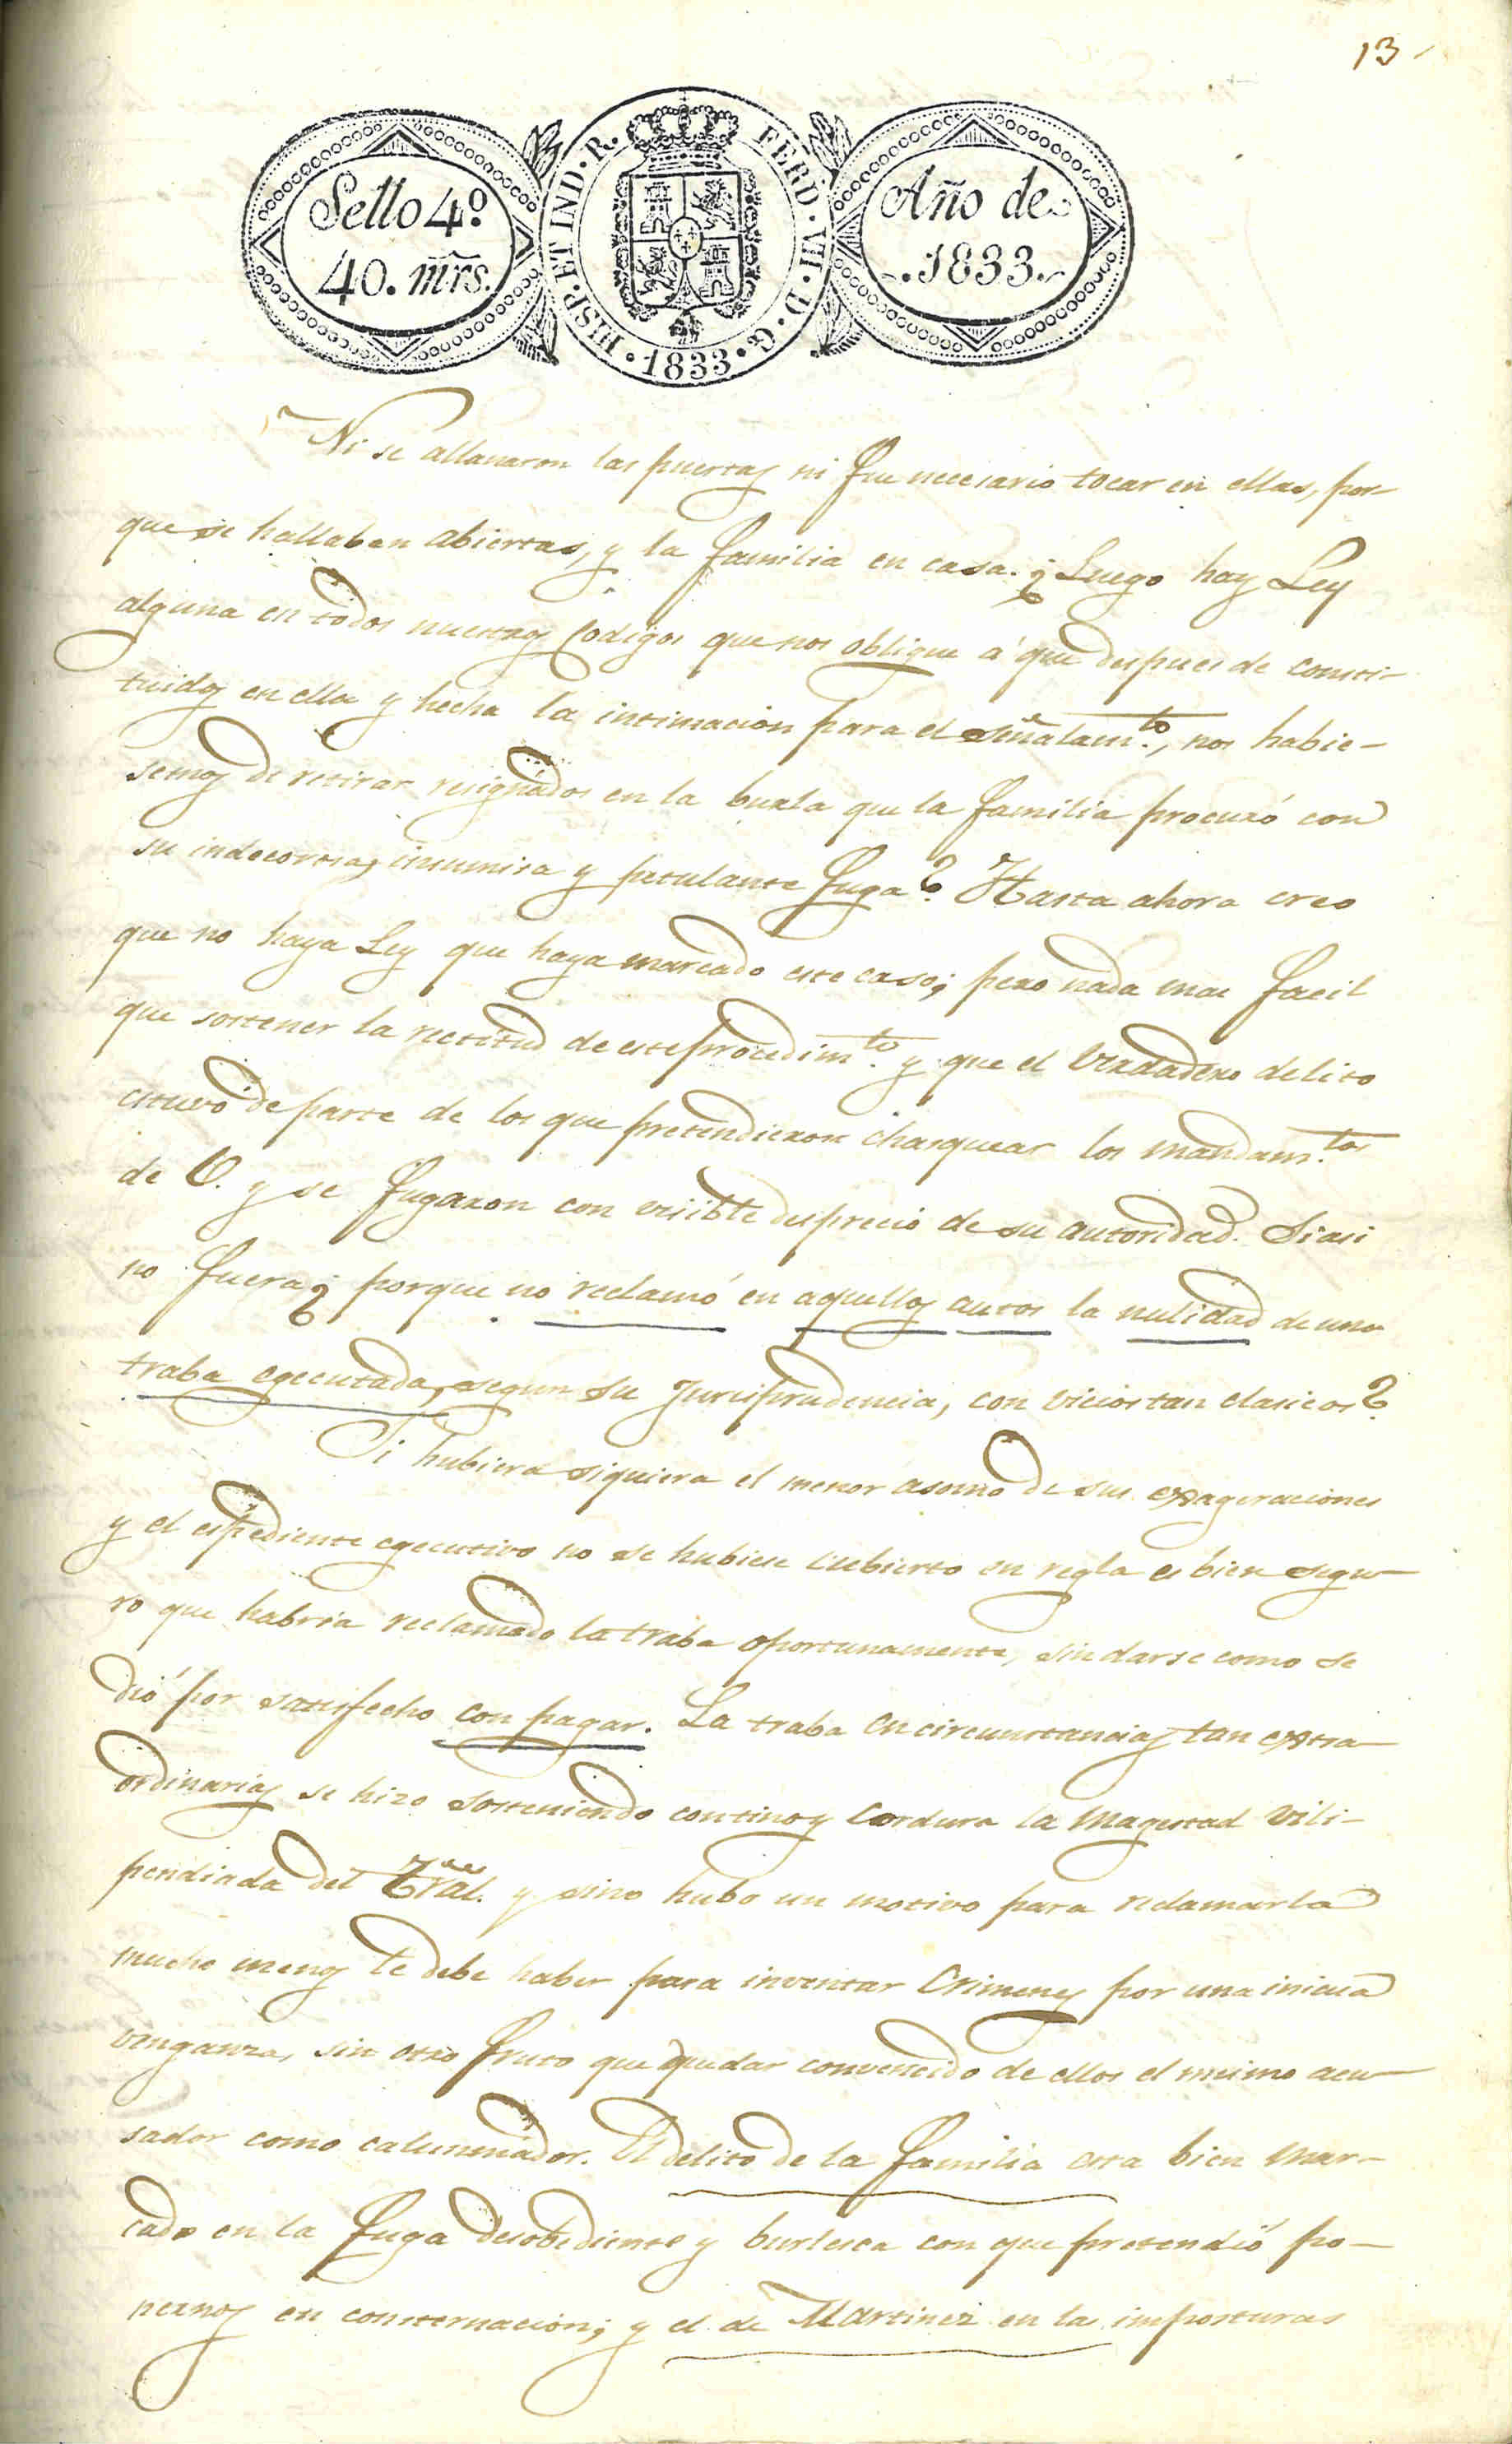 13
Sello 4º
40. mrs.
HISP. ET IND. R. FERD. VII. D. G.
1833
Año de
1833
Ni se allanaron las puertas ni fue necesario tocar en ellas, por-
que se hallaban abiertas, y la familia en casa. ¿Luego hay Ley
alguna en todos nuestros Codigos que nos obligue á que despues de consti-
tuidos en ella y hecha la intimacion para el señalam.to, nos habie-
semos de retirar resignados en la burla que la familia procuró con
su indecorosa, insumisa y petulante fuga? Hasta ahora creo
que no haya Ley que haya marcado este caso; pero nada mas facil
que sostener la rectitud de este procedim.to y que el verdadero delito
estuvo de parte de los que pretendieron chasquear los mandam.tos
de V. y se fugaron con visible desprecio de su autoridad. Si asi
no fuera ¿porque no reclamó en aquellos autos la nulidad de una
traba egecutada, segun su Jurisprudencia, con vicios tan clasicos?
Si hubiera siquiera el menor asomo de sus exageraciones
y el espediente egecutivo no se hubiese cubierto en regla es bien segu-
ro que habria reclamado la traba oportunamente, sin darse como se
dió por satisfecho con pagar. La traba en circunstancias tan extra-
ordinarias se hizo sosteniendo con tino y cordura la Magestad vili-
pendiada del Tral. y sino hubo un motivo para reclamarla
mucho menos le debe haber para inventar Crimenes por una inicua
venganza, sin otro fruto que quedar convencido de ellos el mismo acu-
sador como calumniador. El delito de la familia esta bien mar-
cado en la fuga desobediente y burlesca con que pretendió po-
nernos en consternacion; y el de Martinez en las imposturas